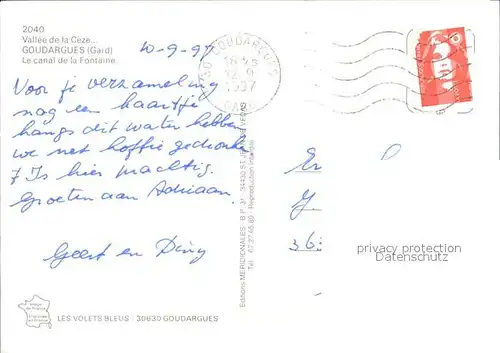 2040
Vallée de la Cèze...
GOUDARGUES (Gard)
Le canal de la Fontaine
10-9-97
Voor je verzameling
nog een kaartje
langs dit water hebben
we net koffie gedronken
't Is hier prachtig.
Groeten aan Adriaan.
Geert en Diny
GOUDARGUES
1997
GARD
Editions MERIDIONALES
Reproduction interdite
Er
J.
36
privacy protection
Datenschutz
LES VOLETS BLEUS - 30630 GOUDARGUES